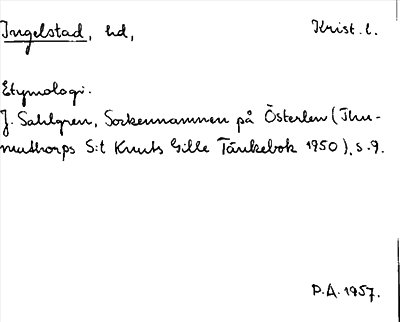 Ingelstad, hd, Krist. l.
Etymologi.
J. Sahlgren, Sockennamnen på Österlen (Thu-
muthorps S:t Knuts Gille Tänkebok 1950), s. 9.
P.A. 1957.